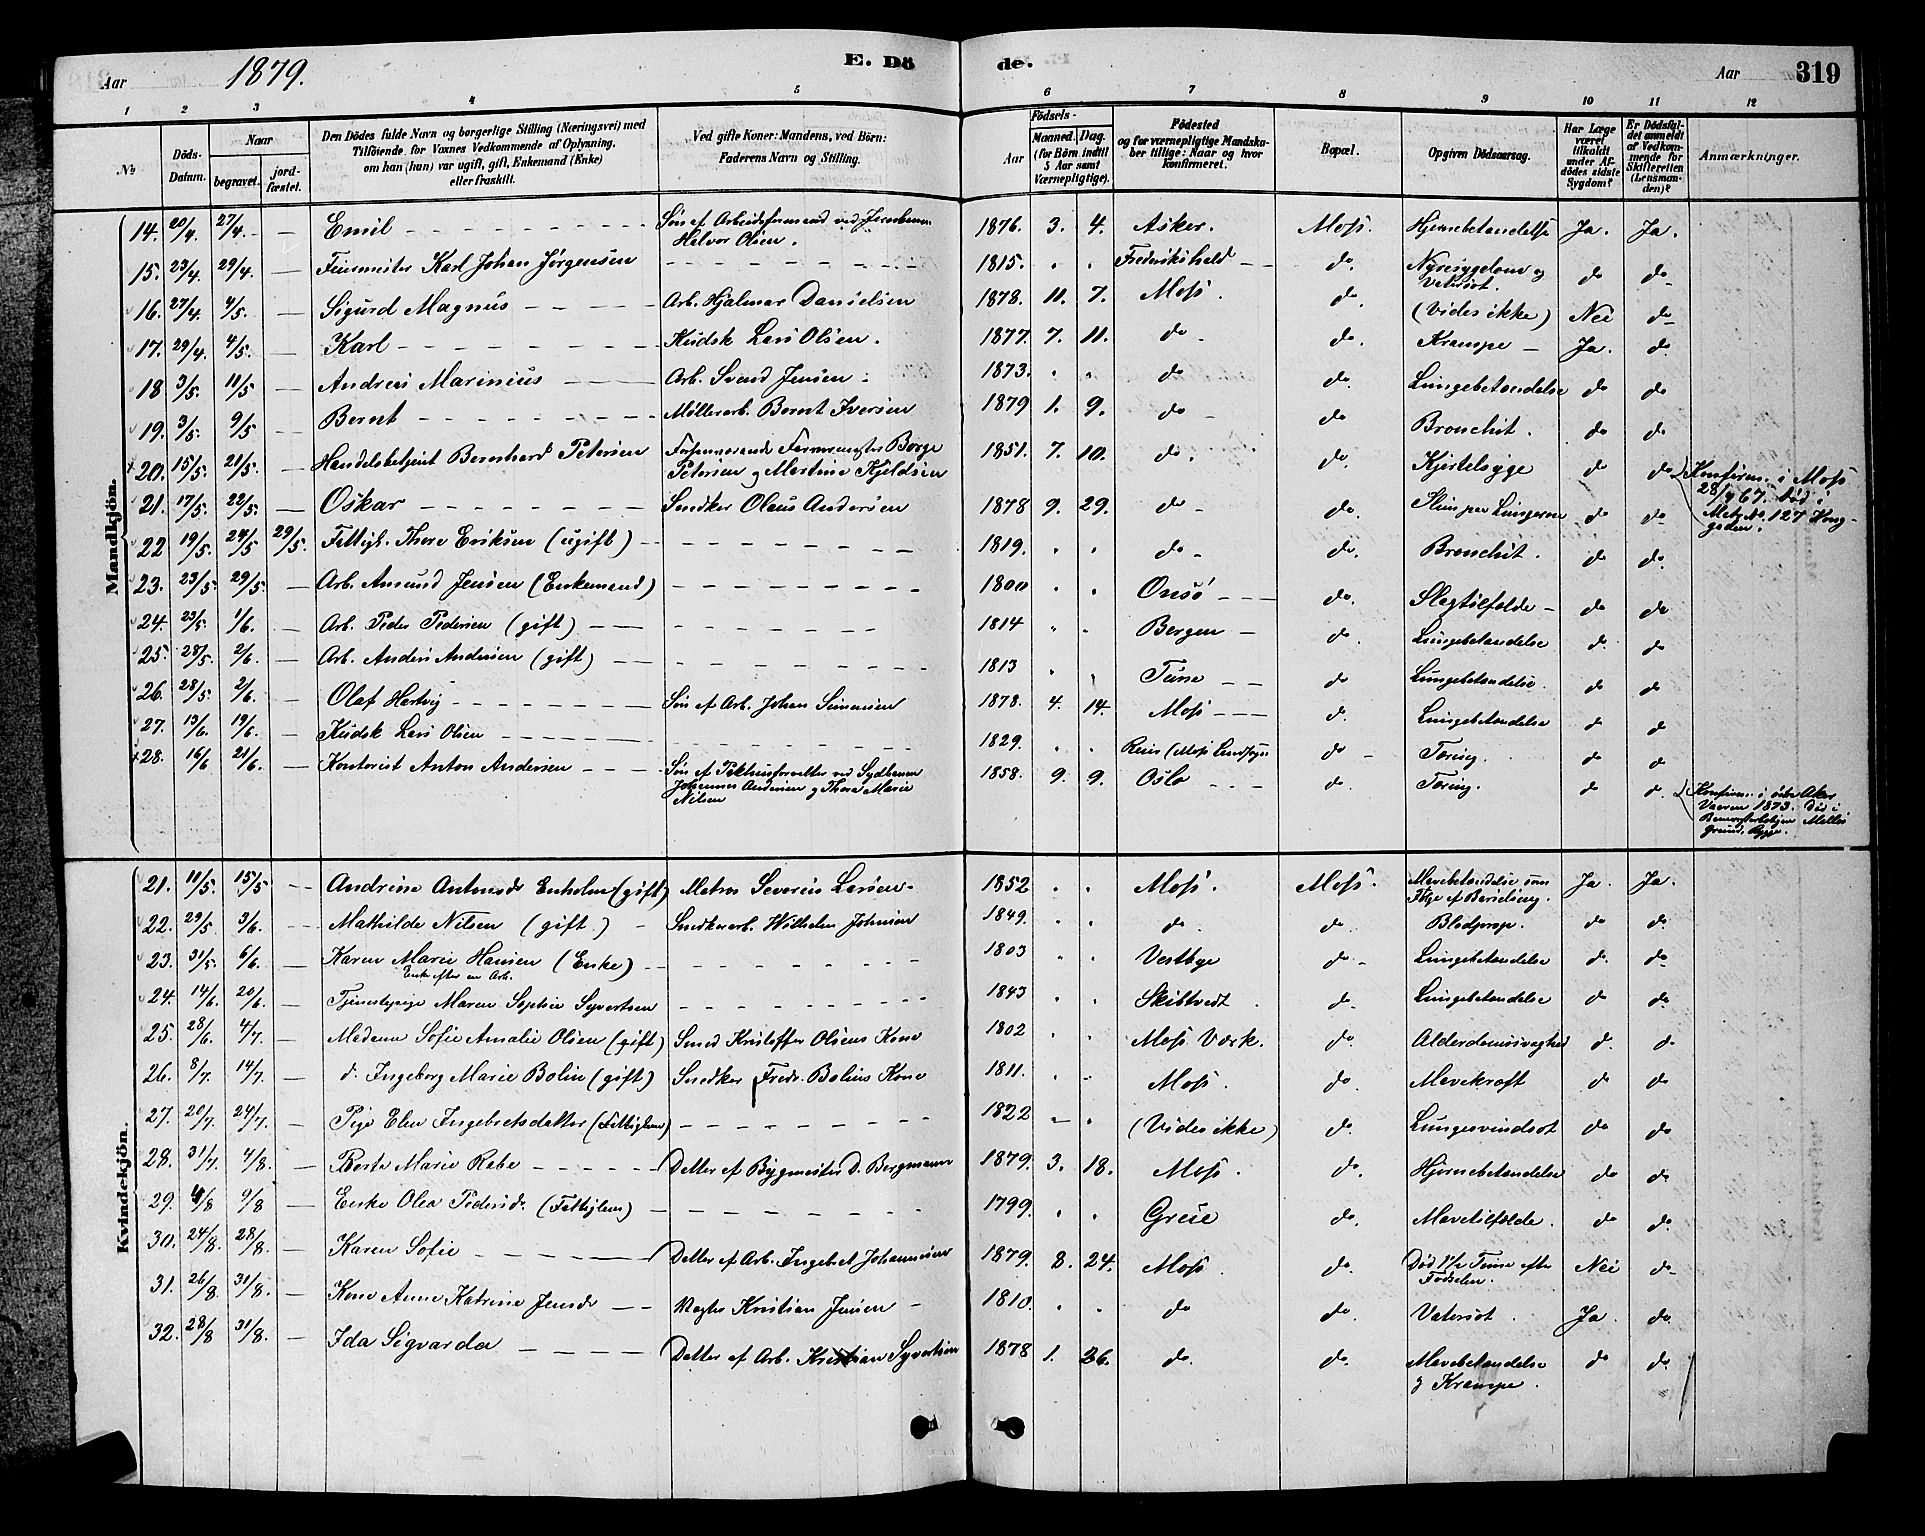 Aar 1879. E. Dö de. Aar 319
1 2 3 4 5 6 7 8 9 10 11 12
No Döds-Datum. Naar begravet. jord-fæstet. Den Dödes fulde Navn og borgerlige Stilling (Næringsvei) med Tilföiende for Voxnes Vedkommende af Oplysning, om han (hun) var ugift, gift, Enkemand (Enke) eller fraskilt. Ved gifte Koner: Mandens, ved Börn: Faderens Navn og Stilling. Födsels- Aar Maaned. Dag. (for Börn indtil 5 Aar samt Værnepligtige). Födested og for værnepligtige Mandskaber tillige: Naar og hvor konfirmeret. Bopæl. Opgiven Dödsaarsag. Har Læge været tilkaldt under Afdödes sidste Sygdom? Er Dödsfaldet anmeldt af Vedkommende for Skifteretten (Lensmanden)? Anmærkninger.
Mandkjön.
14. 20/4. 27/4. — Emil Sön af Arbeidsformand ved Jernbanen Halvor Olsen. 1876. 3. 4. Asker. Moss. Hjernebetændelse Ja. Ja.
15. 23/4. 29/4. — Karl Johan Jørgensen 1815. " " Frederikshald do. Nyresygdom og Vatersot. do do
16. 27/4. 4/5. — Sigurd Magnus Arb. Hjalmar Danielsen 1878. 11. 7. Moss. do. (Vides ikke) Nei do
17. 29/4. 4/5. — Karl Kudsk Lars Olsen. 1877. 7. 11. do do. Krampe Ja. do.
18 3/5. 11/5. — Andreas Marinius Arb. Svend Jensen. 1873. " " do do. Lungebetændelse do do
19. 3/5. 9/5. — Bernt Møllerarb. Bernt Iversen 1879 1. 9. do do Bronchit. do do
20. 15/5. 21/5. — Handelsbetjent Bernhard Petersen Børge Petersen og Martine Kjeldsen 1851. 7. 10. do. do. Kjertelsyge do do Konfirm. i Moss 28/4 67. Död i Matr. No. 127
21. 17/5. 22/5. — Oskar Snedker Olaus Andersen 1878 9. 29. do do. Sliim paa Lungerne do do
22 19/5. 24/5 29/5. Fattigl. Thore Eriksen (ugift) 1819. " " do do. Bronchit. do do.
23. 23/5. 29/5. — Arb. Amund Jensen (Enkemand) 1800 " " Onsö do. Slagtilfælde do do
24. 23/5. 1/6. — Arb. Peder Pedersen (gift) 1814 " " Bergen do. Lungebetændelse do. do
25. 28/5. 2/6. — Arb. Anders Andersen (gift) 1813 " " Tune do Lungebetændelse do do
26. 28/5. 2/6. — Olaf Hartvig Sön af Arb. Johan Simensen 1878. 4. 14. Moss do. Lungebetændelse do do
27. 13/6. 19/6. — Kudsk Lars Olsen 1829. " " (Moss Landsogn do Tæring. do do
28. 16/6 21/6. — Kontorist Anton Andersen Sön af Pakhusforvalter ved Sydbanen Johannes Andersen og Thora Marie Nilsen 1858. 9. 9. Oslo do. Tæring. do do. Konfirm. i östre Aker Vaaren 1873. Död i
Kvindekjön.
21. 11/5. 15/5 — Andrine Antonsdr Enholm (gift) Matros Severin Larsen 1852 " " Moss. Moss. Mavebetændelse som Følge af Barselseng. Ja. Ja.
22. 29/5 3/6. — Mathilde Nilsen (gift.) Snedkerarb. Wilhelm Johnsen 1849. " " do. do. Blodprop. do do.
23. 31/5. 6/6. — Karen Marie Hansen (Enke) Enke efter en Arb. 1803 " " Vestbye do Lungebetændelse do. do
24. 14/6. 20/6. — Tjenestepige Maren Sophie Syvertsen 1843 " " Skibtvedt do. Lungebetændelse do do.
25. 28/6. 4/7. — Madame Sofie Amalie Olsen (gift) Smed Kristoffer Olsens Kone 1802 " " Moss Værk. do. Alderdomssvaghed do. do
26. 8/7. 14/7. — do. Ingeborg Marie Bolin (gift) Snedker Fredr. Bolins Kone 1811. " " Moss. do. Mavekræft do do
27. 20/7. 24/7. — Pige Elen Ingebretsdatter (Fattiglem) 1822 — " (Vides ikke) do. Lungesvindsot do do
28. 31/7. 4/8. — Marie Rebe Datter af Bygmester D. Bergmann 1879. 3. 18. Moss. do. Hjernebetændelse do do.
29. 4/8 9/8 — Enke Olea Pedersdr. (Fattiglem) 1799. " " Grue do. Mavetilfælde. do do.
30. 24/8. 28/8. — Karen Sofie Datter af Arb. Ingebret Johannesen 1879. 8. 24. Moss. do. Död 1½ Time efter Födselen. Nei do
31. 26/8. 31/8. — Kone Anne Katrine Jensdr Vagter Kristian Jensen 1810 " " do do. Vatersot. Ja. do.
32. 28/8 31/8. — Ida Sigvarda Datter af Arb. Kristian Syvertsen 1878 1. 26. do. do. Mavebetændelse og Krampe. do do.